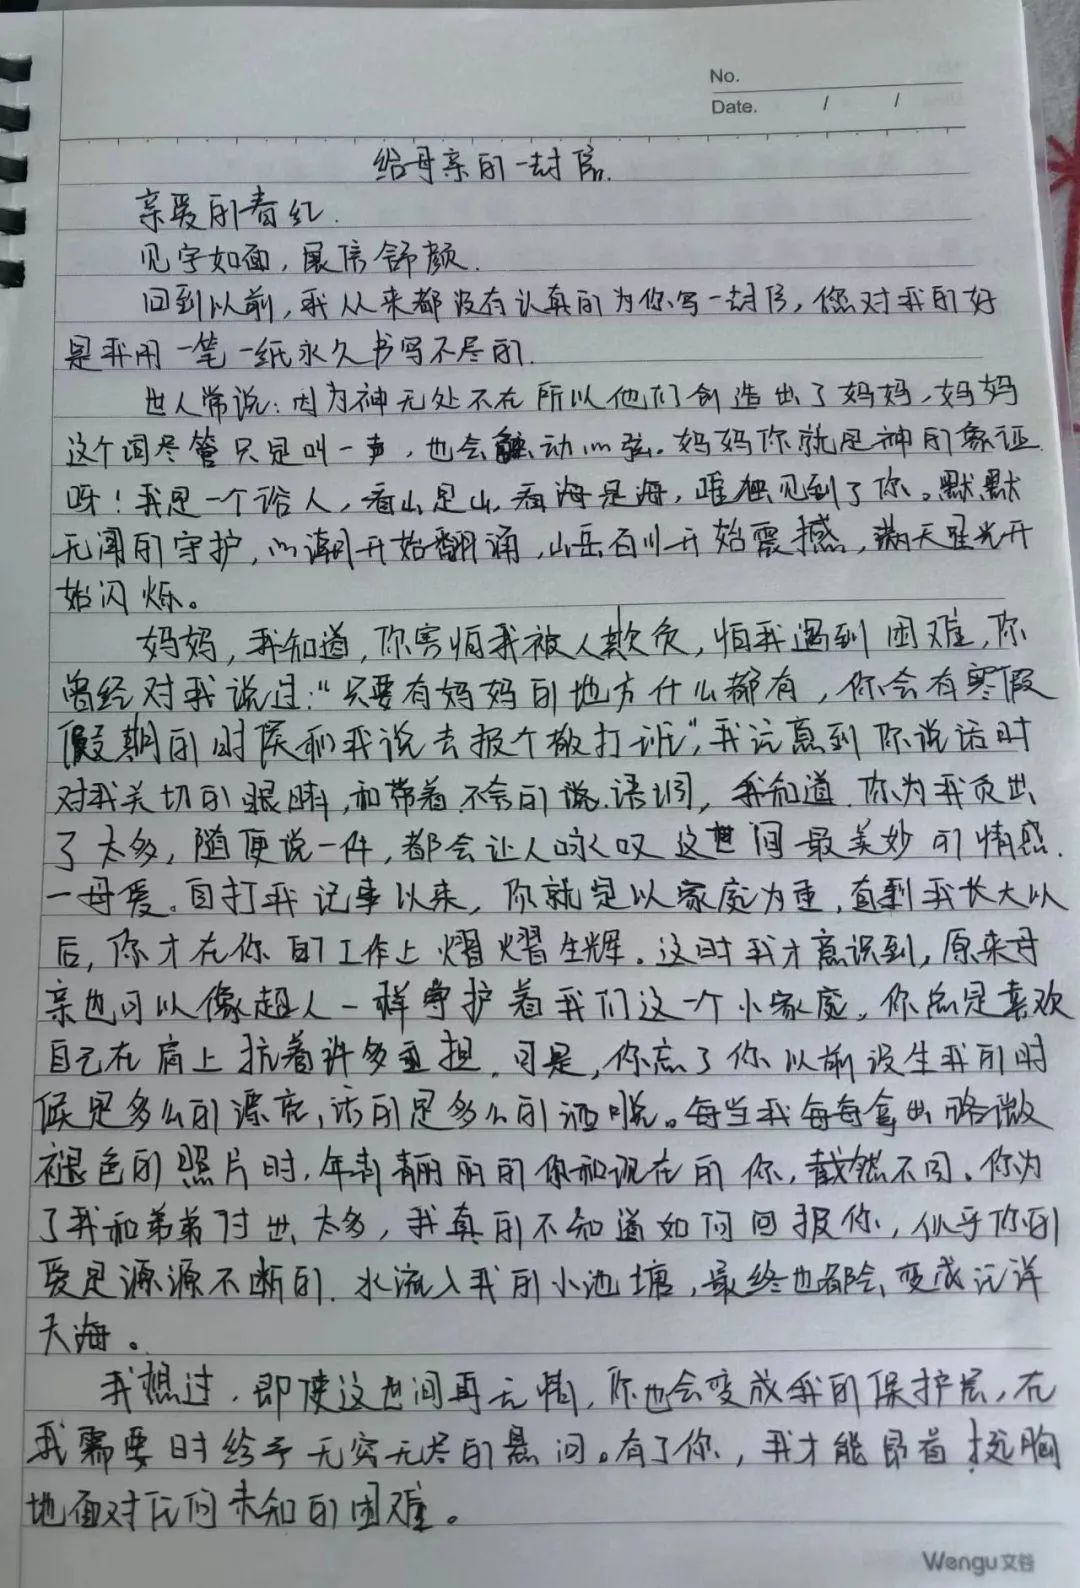 No.
Date. / /
给母亲的一封信.
亲爱的春红.
见字如面，展信舒颜.
回到以前，我从来都没有认真的为你写一封信，您对我的好
是我用一笔一纸永久书写不尽的.
世人常说：因为神无处不在所以他们创造出了妈妈，妈妈
这个词尽管只是叫一声，也会触动心弦。妈妈你就是神的象证
呀！我是一个俗人，看山是山，看海是海，唯独见到了你。默默
无闻的守护，心潮开始翻涌，山岳百川开始震撼，满天星光开
始闪烁。
妈妈，我知道，你害怕我被人欺负，怕我遇到困难，你
曾经对我说过：“只要有妈妈的地方什么都有，你会有寒假
假期的时候和我说去报个散打班”，我注意到你说话时
对我关切的眼睛，和带着不舍的说.语词，我知道.你为我负出
了太多，随便说一件，都会让人咏叹这世间最美妙的情感.
一母爱.自打我记事以来，你就是以家庭为重，直到我长大以
后，你才在你的工作上熠熠生辉。这时我才意识到，原来母
亲也可以像超人一样守护着我们这一个小家庭。你总是喜欢
自己在肩上抗着许多重担.可是，你忘了你以前没生我的时
候是多么的漂亮，活的是多么的洒脱。每当我每每拿出略微
褪色的照片时，年青靓丽的你和现在的你，截然不同。你为
了我和弟弟付出太多，我真的不知道如何回报你，似乎你的
爱是源源不断的.水流入我的小池塘，最终也都会变成汪洋
大海。
我想过，即使这世间再无情，你也会变成我的保护层，在
我需要时给予无穷无尽的悬问。有了你，我才能昂首挺胸
地面对任何未知的困难。
Wengu文谷